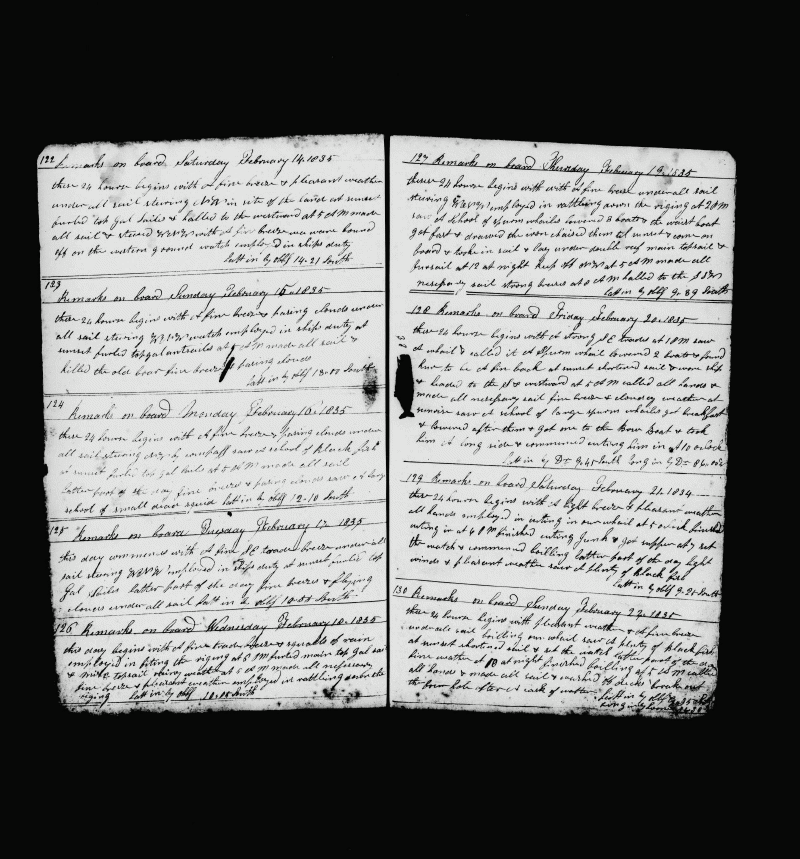 122 Remarks on board Saturday February 14. 1835
these 24 hours begins with A fine breeze & pleasant weather
under all sail stering NW in site of the land at sunset
furled top gal sailes & halled to the westward at 5 AM made
all sail & stered WBN with A fine breeze we were bound
off on the western ground watch employed in ships duty
Latt in by obsf 14-21 South
123
Remarks on board Sunday February 15. 1835
these 24 hours begins with A fine breeze & pasing clouds under
all sail stering WBN watch employed in ships duty at
sunset furled topgalantsails at 5 AM made all sail &
killed the old boar fine breeze & pasing clouds
Latt in by obsf 13-00 South
124
Remarks on board Monday February 16. 1835
these 24 hours begins with A fine breeze & pasing clouds under
all sail stering saw A school of black fish
at sunset furled top gal sails at 5 AM made all sail
latter part of the day fine breeze & pasing clouds saw A large
school of small squid latt in by obsf 12-10 South
125 Remarks on board Tuesday February 17. 1835
this day commences with A fine SE trade breeze under all
sail stering WBN employed in ships duty at sunset furled top
Gal Sailes latter part of the day fine breeze & flying
clouds under all sail Latt in by obsf South
126 Remarks on board Wednesday February 18. 1835
this day begins with A fine trade breeze & squals of rain
employed in fiting the riging at 6 PM furled main top Gal sail
& topsail weather at 5 AM made all nessesary
fine breeze & pleasant weather employed in rattling
riging Latt in by obsf South
127 Remarks on board Thursday February 19. 1835
these 24 hours begins with with A fine breeze under all sail
stering employed in rattling down the riging at 2 PM
saw A school of sperm whailes lowered 3 boats & the waist boat
got fast & drawed the iron chaised them til sunset & come on
board & tooke in sail & lay under double reef main topsail &
foresail at 12 at night keep off at 5 AM made all
nesesary sail strong breese at 8 AM halled to the
Latt in by obsf 9-39 South
128 Remarks on board Friday February 20. 1835
these 24 hours begins with A strong SE trades at 1 PM saw
A whail & called it A sperm whail lowered 2 boats & found
him to be A fin back at sunset shortned sail & wore ship
& headed to the westward at 5 AM called all hands &
made all nesesary sail fine breeze & cloudy weather at
sunrise saw A school of large sperm whailes got breakfast
& lowered after them & got one to the Bow Boat & took
him A long side & commenced cuting him in at 10 oclock
Latt in by Dr 9-45 South Long in by Dr
129 Remarks on board Saturday February 21. 1834
these 24 hours begins with A light breeze & pleasant weather
all hands employed in cuting in our whail at 3 oclock finished
cuting in at 4 PM finished cuting Junk & got supper at 7 set
the watch & commenced boiling latter part of the day light
winds & pleasant weather saw A plenty of black fish
Latt in by obsf 9-25 South
130 Remarks on board Sunday February 22. 1835
these 24 hours begins with pleasant weather & A fine breeze
under all sail boiling our whail saw A plenty of black fish
at sunset shortned sail & set the watch latter part of the day
fine weather at 10 at night finished boiling at 5 AM called
all hands & made all sail & washed the decks broak out
the fore hole after A cask of water
Latt in by obsf
Long in by